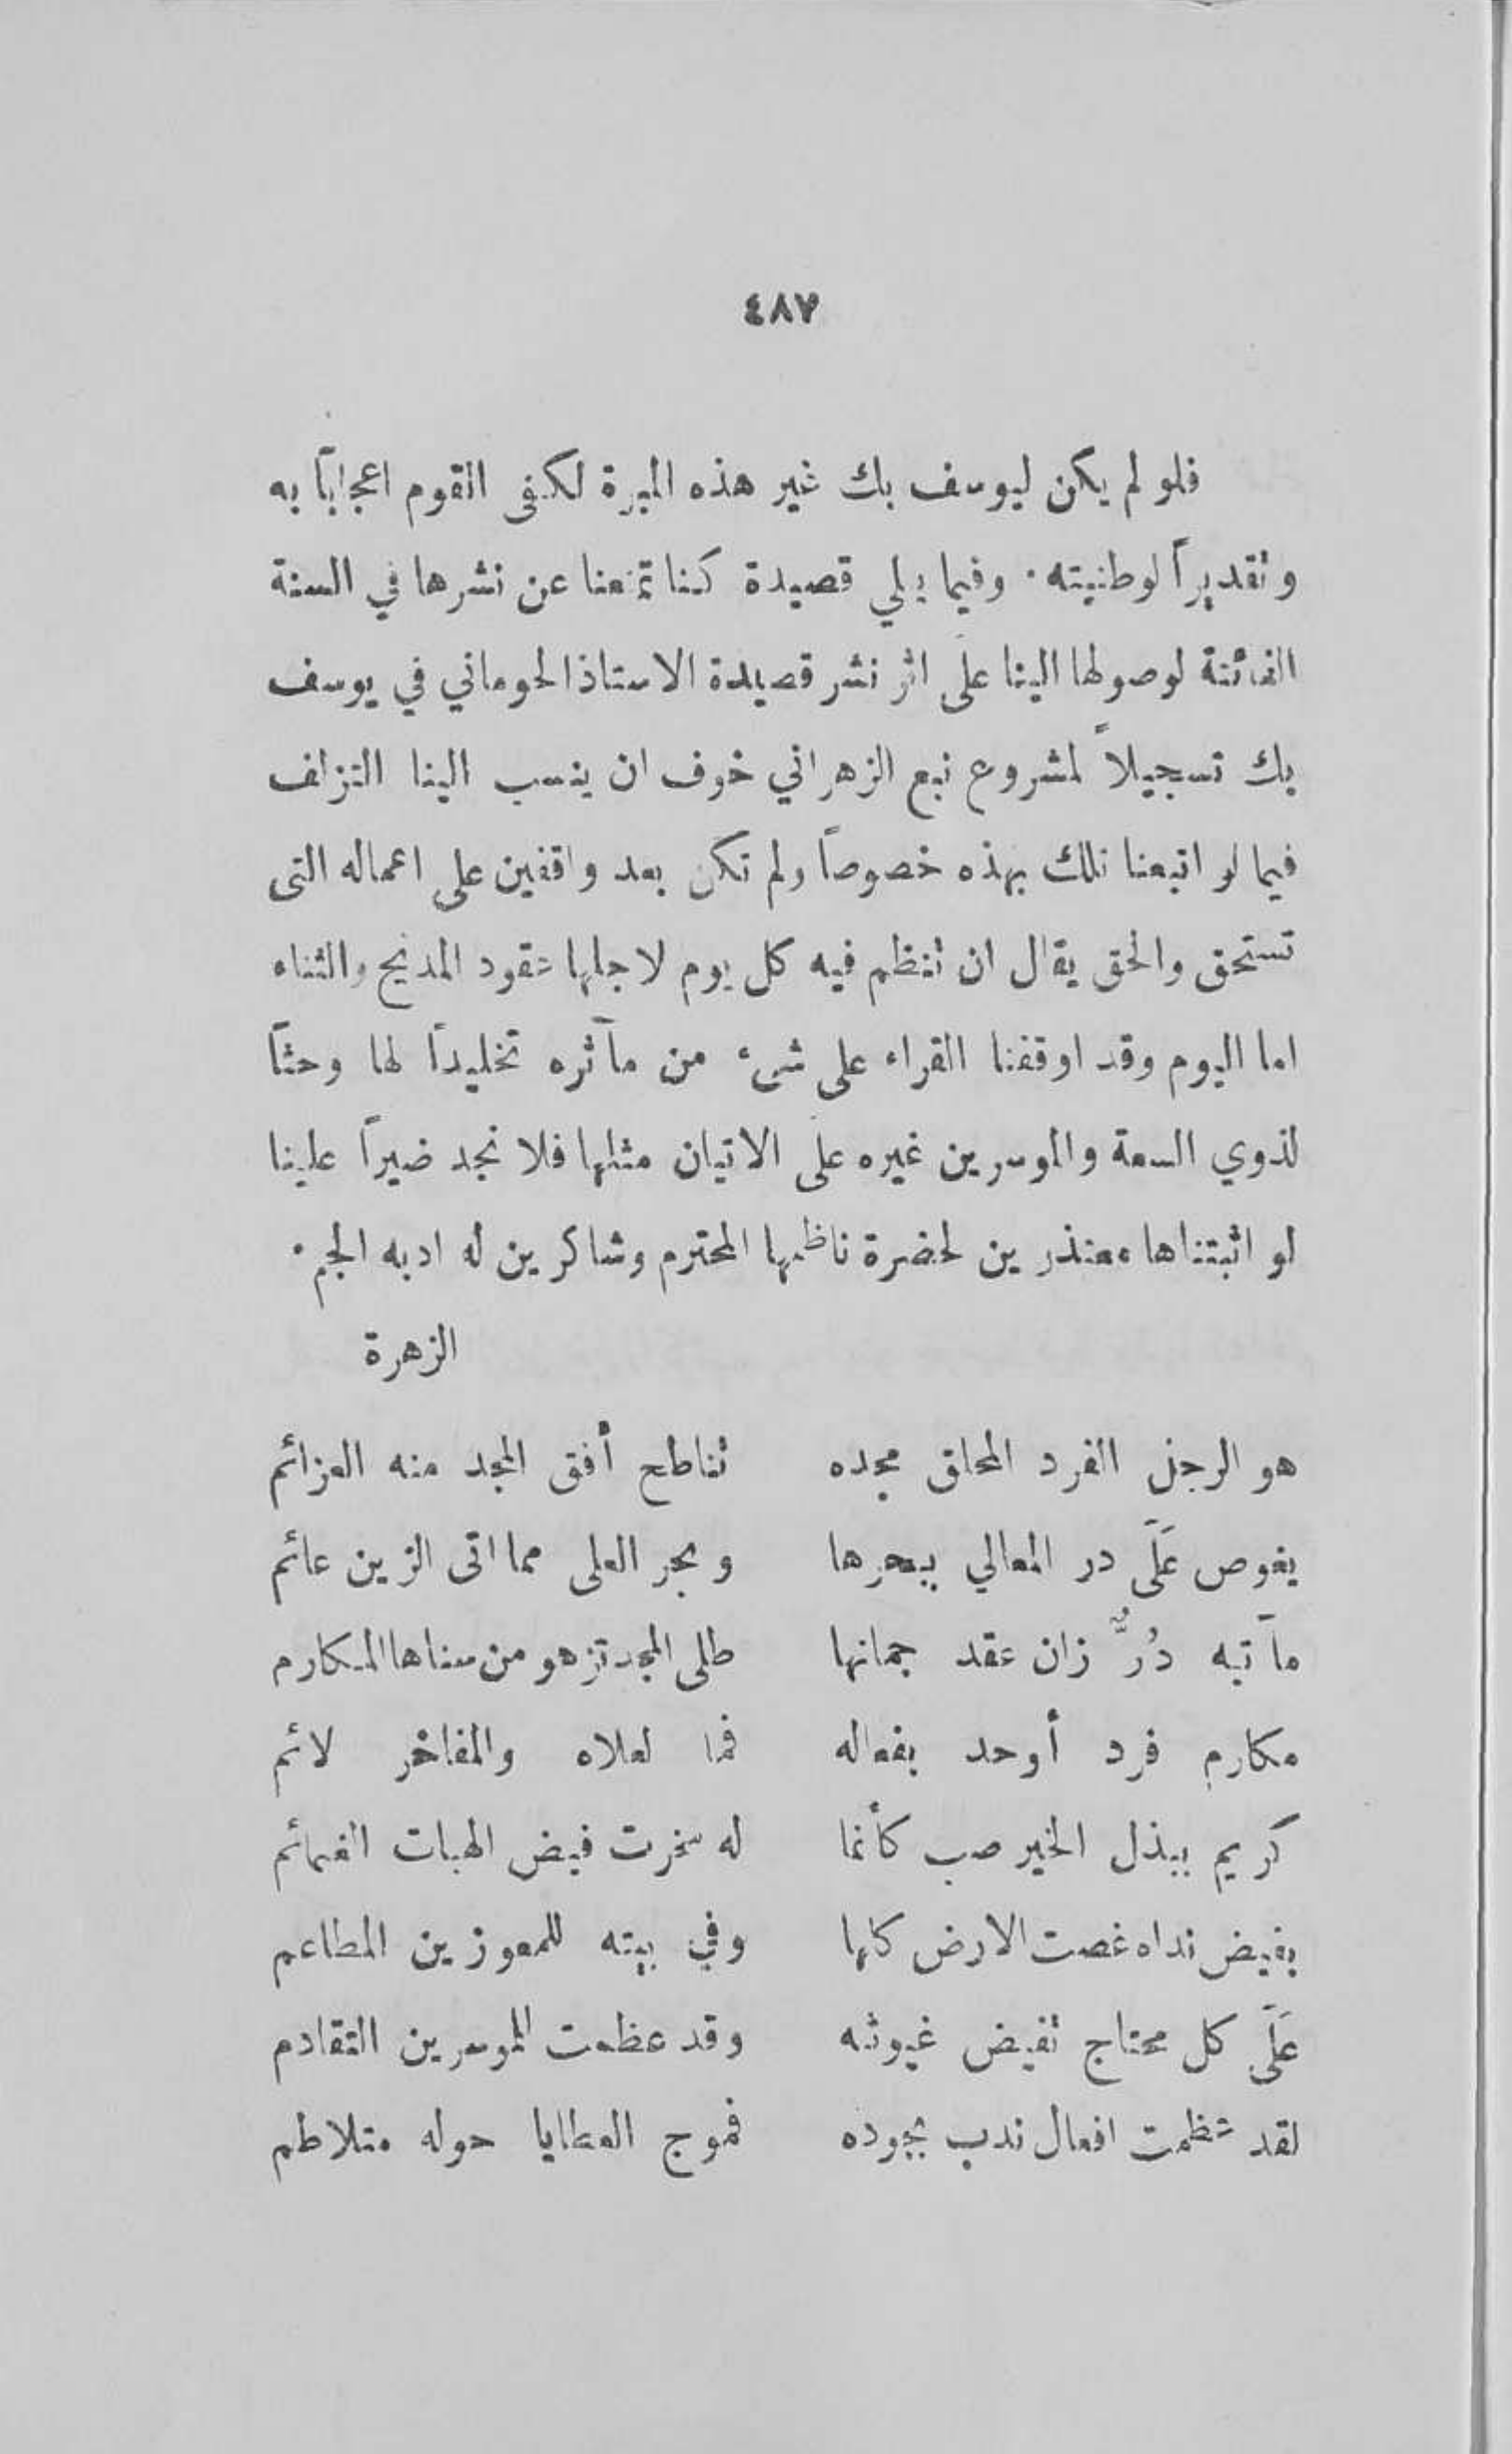 ٤٨٧
فلو لم يكن ليوسف بك غير هذه المبرة لكفى القوم اعجاباً به
وتقديراً لوطنيته. وفيما يلي قصيدة كنا تمنعنا عن نشرها في السنة
الفائتة لوصولها الينا على اثر نشر قصيدة الاستاذ الحوماني في يوسف
بك تسجيلاً لمشروع نبع الزهراني خوف ان ينسب الينا التزلف
فيما لو اتبعنا تلك بهذه خصوصاً ولم نكن بعد واقفين على اعماله التى
تستحق والحق يقال ان تنظم فيه كل يوم لاجلها عقود المديح والثناء
اما اليوم وقد اوقفنا القراء على شىء من مآثره تخليداً لها وحثاً
لذوي السعة والموسرين غيره على الاتيان مثلها فلا نجد ضيراً علينا
لو اثبتناها معتذرين لحضرة ناظمها المحترم وشاكرين له ادبه الجم.
الزهرة
هو الرجل الفرد المحلق مجده تناطح أفق المجد منه العزائم
يغوص عَلَى در المعالي ببحرها وبحر العلى مما اتى الزين عائم
مآتيه دُرٌّ زان عقد جمانها طلى المجد تزهو من سناها المكارم
مكارم فرد أوحد بفعاله فما لعلاه والمفاخر لائم
كريم ببذل الخير صب كأنما له سخرت فيض الهبات الغمائم
بفيض نداه غصت الارض كلها وفي بيته للمعوزين المطاعم
عَلَى كل محتاج تفيض غيوثه وقد عظمت للموسرين التقادم
لقد عظمت افعال ندب بجوده فموج العطايا حوله متلاطم